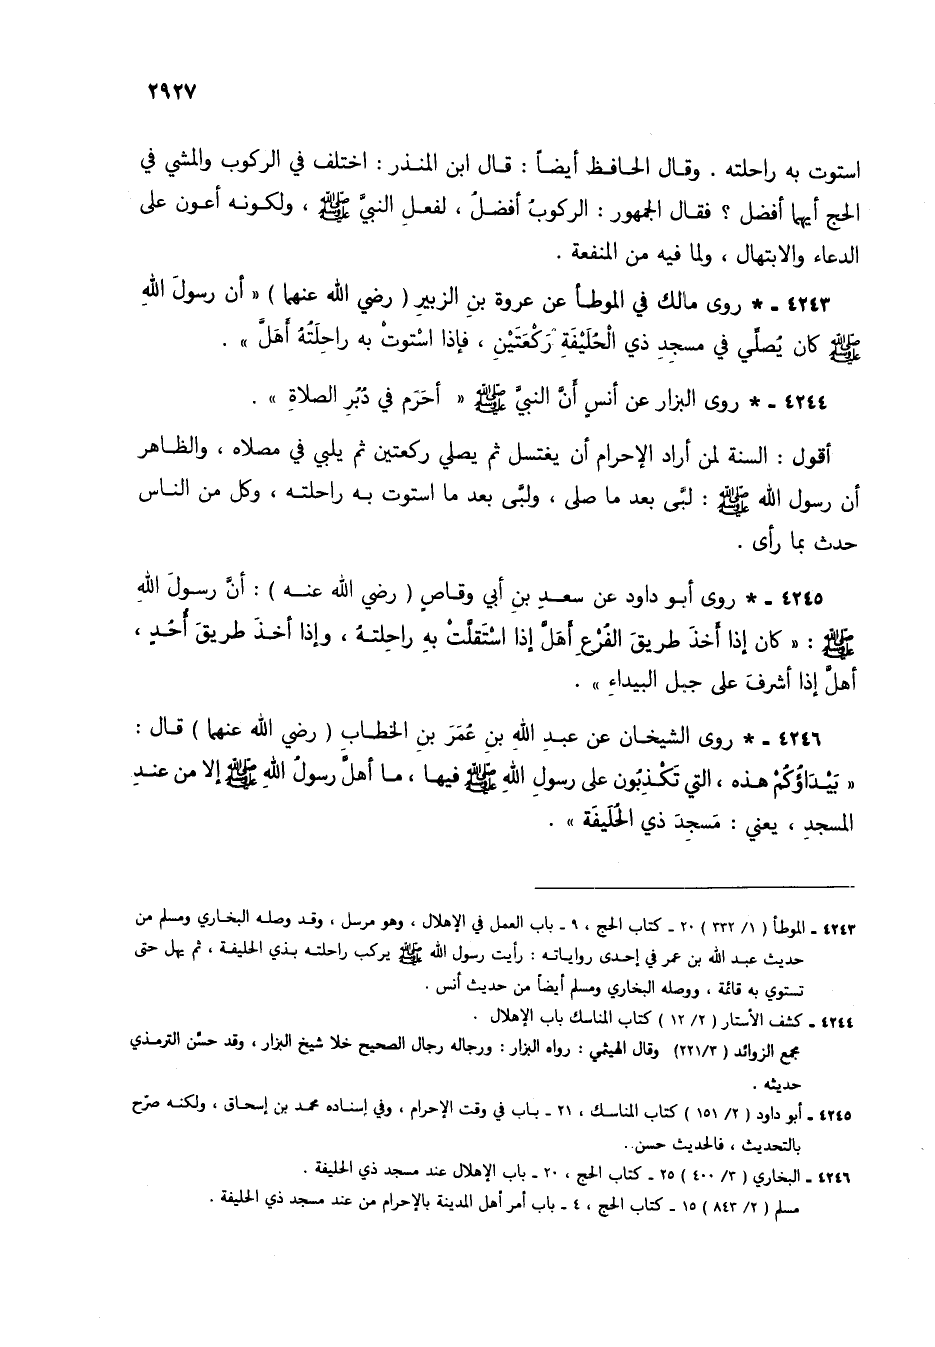 ٢٩٢٧
استوت به راحلته . وقال الحافظ أيضاً : قال ابن المنذر : اختلف في الركوب والمشي في
الحج أيها أفضل ؟ فقال الجمهور : الركوبُ أفضلُ ، لفعلِ النبيِّ ﷺ ، ولكونه أعون على
الدعاء والابتهال ، ولما فيه من المنفعة .
٤٢٤٣ - * روى مالك في الموطأ عن عروة بنِ الزبيرِ ( رضي الله عنهما ) « أن رسولَ اللهِ
ﷺ كان يُصلَّي في مسجدِ ذي الْحُلَيْفَةِ رَكْعَتَيْنِ ، فإذا اسْتوتْ به راحِلَتُهُ أَهَلَّ » .
٤٢٤٤ - * روى البزار عن أنسٍ أَنَّ النبيَّ ﷺ « أحَرَم في دُبُرِ الصلاةِ » .
أقول : السنة لمن أراد الإحرام أن يغتسل ثم يصلي ركعتين ثم يلبي في مصلاه ، والظاهر
أن رسول الله ﷺ : لبَّى بعد ما صلى ، ولبَّى بعد ما استوت به راحلته ، وكل من الناس
حدث بما رأى .
٤٢٤٥ - * روى أبو داود عن سعدِ بنِ أبي وقاصٍ ( رضي الله عنه ) : أنَّ رسولَ اللهِ
ﷺ : « كان إذا أَخذَ طريقَ الفُرْعِ أَهَلَّ إذا اسْتَقلَّتْ بهِ راحِلتهُ ، وإذا أخذَ طريقَ أُحُدٍ ،
أهلَّ إذا أشرفَ على جبل البيداءِ » .
٤٢٤٦ - * روى الشيخان عن عبدِ اللهِ بنِ عُمَرَ بنِ الخطابِ ( رضي الله عنهما ) قال :
« بَيْدَاؤُكُمْ هذه ، التي تَكْذِبُون على رسولِ اللهِ ﷺ فيها ، ما أهلَّ رسولُ اللهِ ﷺ إلا من عندِ
المسجدِ ، يعني : مَسجِدَ ذي الحُلَيفَة » .
٤٢٤٣ - الموطأ ( ١/ ٣٣٢ ) ٢٠ - كتاب الحج ، ٩ - باب العمل في الإهلال ، وهو مرسل ، وقد وصله البخاري ومسلم من
حديث عبد الله بن عمر في إحدى رواياته : رأيت رسول الله ﷺ يركب راحلته بذي الحليفة ، ثم يهل حتى
تستوي به قائمة ، ووصله البخاري ومسلم أيضاً من حديث أنس .
٤٢٤٤ - كشف الأستار ( ٢/ ١٢ ) كتاب المناسك باب الإهلال .
مجمع الزوائد ( ٢٢١/٣) وقال الهيثمي : رواه البزار : ورجاله رجال الصحيح خلا شيخ البزار ، وقد حسَّن الترمذي
حديثه .
٤٢٤٥ - أبو داود ( ٢/ ١٥١ ) كتاب المناسك ، ٢١ - باب في وقت الإحرام ، وفي إسناده محمد بن إسحاق ، ولكنه صرّح
بالتحديث ، فالحديث حسن .
٤٢٤٦ - البخاري ( ٣/ ٤٠٠ ) ٢٥ - كتاب الحج ، ٢٠ - باب الإهلال عند مسجد ذي الحليفة .
مسلم ( ٢/ ٨٤٣ ) ١٥ - كتاب الحج ، ٤ - باب أمر أهل المدينة بالإحرام من عند مسجد ذي الحليفة .